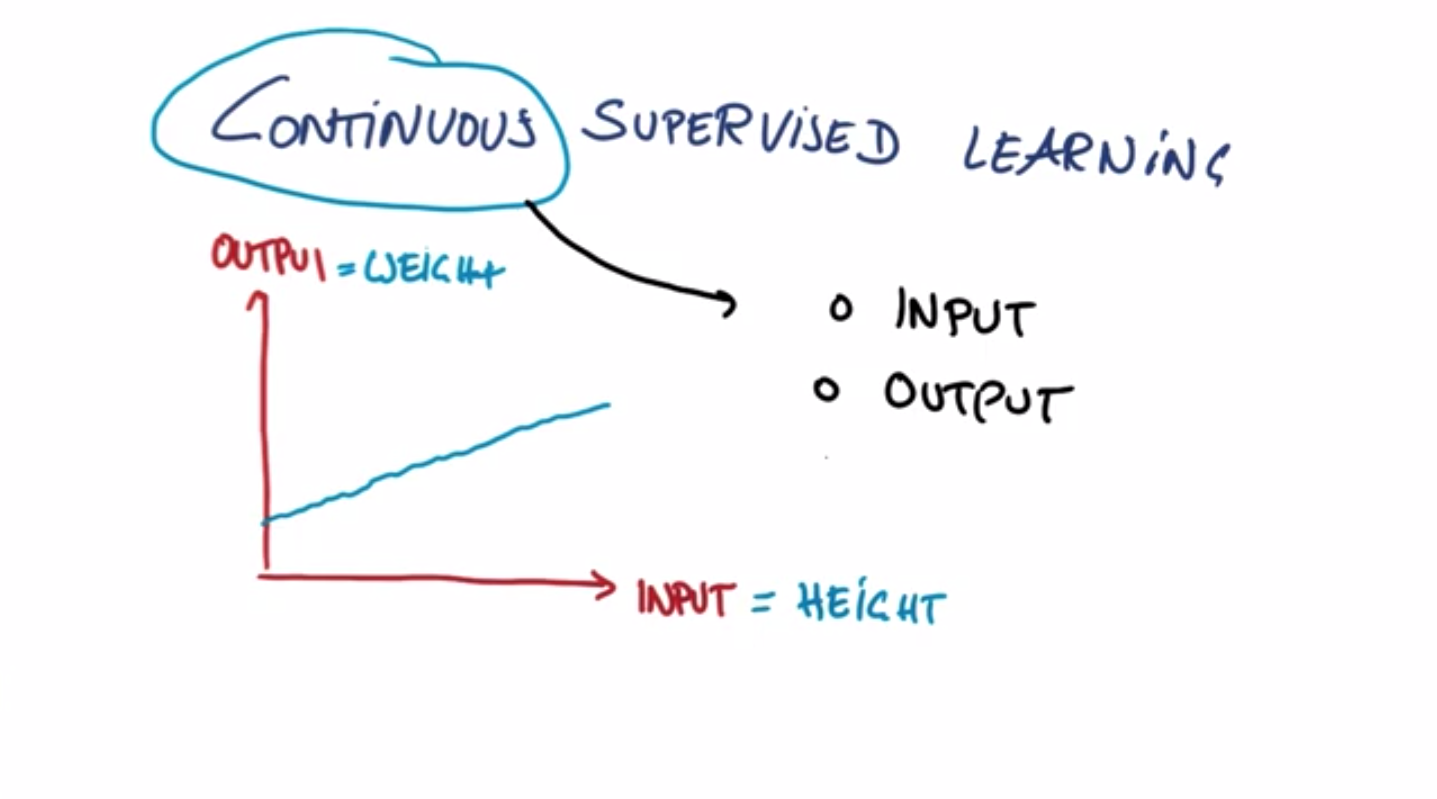 CONTINUOUS SUPERVISED LEARNING
OUTPUT = WEIGHT
INPUT
OUTPUT
INPUT = HEIGHT